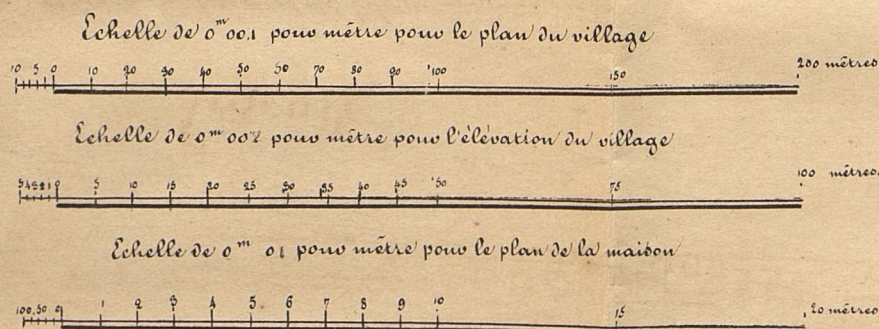 Echelle de 0ᵐ 00,1 pour mètre pour le plan du village
10 5 0 10 20 30 40 50 60 70 80 90 100 150 200 mètres
Echelle de 0ᵐ 002 pour mètre pour l'élévation du village
5 4 3 2 1 0 5 10 15 20 25 30 35 40 45 50 75 100 mètres.
Echelle de 0ᵐ 01 pour mètre pour le plan de la maison
100 50 0 1 2 3 4 5 6 7 8 9 10 15 20 mètres